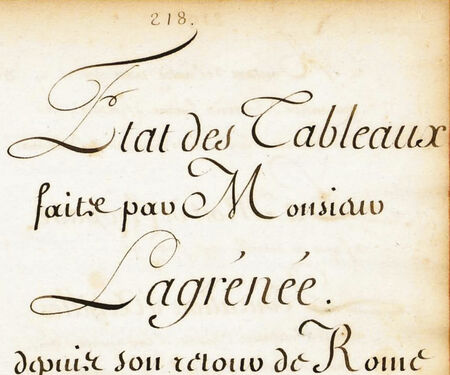 218.
Etat des Tableaux
faits par Monsieur
Lagrénée.
depuis son retour de Rome